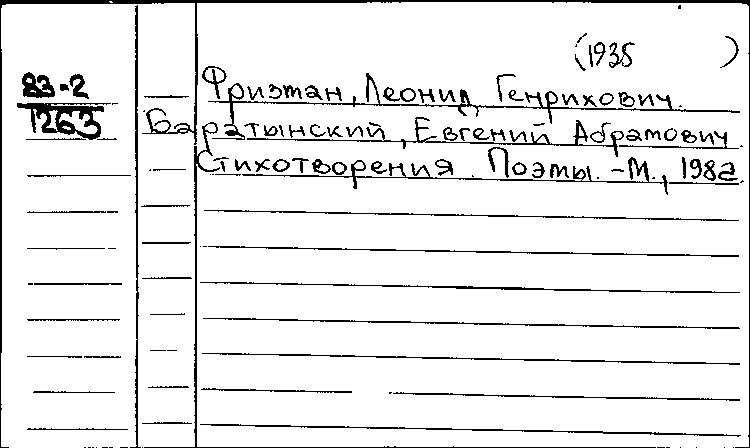 (1935 )
83-2
Фризман, Леонид Генрихович.
1263
Баратынский, Евгений Абрамович
Стихотворения. Поэмы. -М., 1982